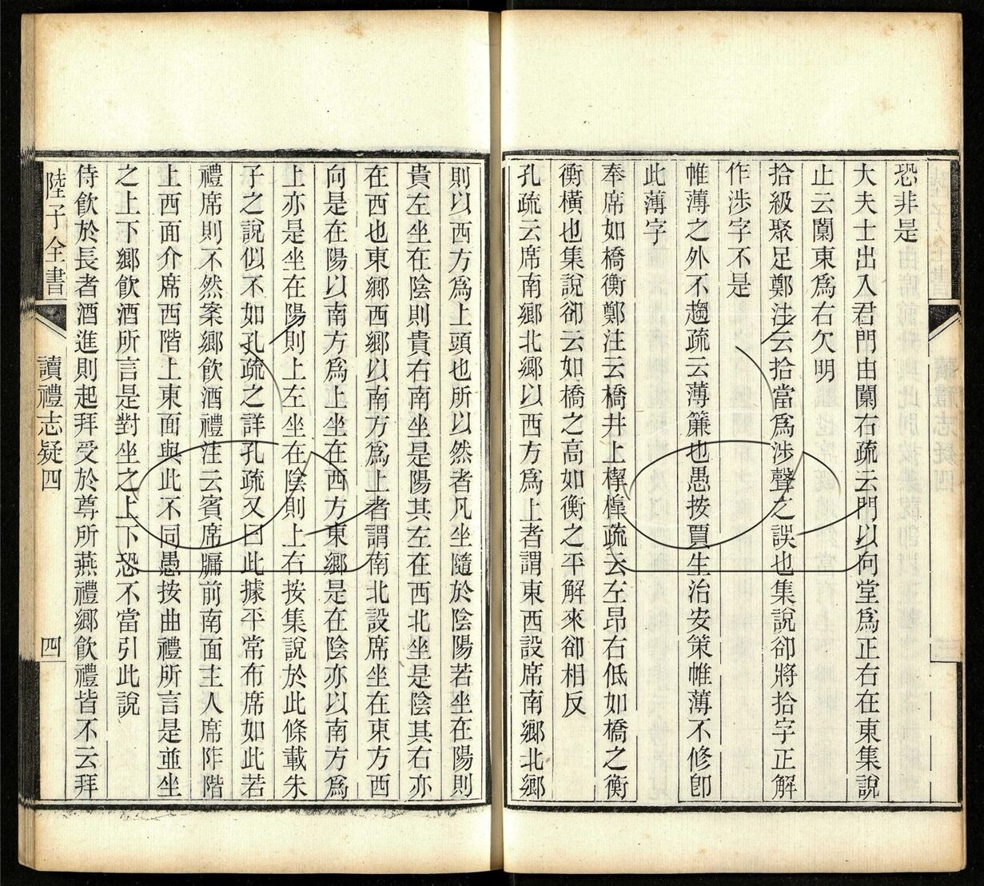 恐非是
大夫士出入君門由闑右疏云門以向堂爲正右在東集說
止云闑東爲右欠明
拾級聚足鄭注云拾當爲涉聲之誤也集說卻將拾字正解
作涉字不是
帷薄之外不趨疏云薄簾也愚按賈生治安策帷薄不修卽
此薄字
奉席如橋衡鄭注云橋井上㮮槹疏云左昂右低如橋之衡
衡橫也集說卻云如橋之高如衡之平解來卻相反
孔疏云席南鄉北鄉以西方爲上者謂東西設席南鄉北鄉
則以西方爲上頭也所以然者凡坐隨於陰陽若坐在陽則
貴左坐在陰則貴右南坐是陽其左在西北坐是陰其右亦
在西也東鄉西鄉以南方爲上者謂南北設席坐在東方西
向是在陽以南方爲上坐在西方東鄉是在陰亦以南方爲
上亦是坐在陽則上左坐在陰則上右按集說於此條載朱
子之說似不如孔疏之詳孔疏又曰此據平常布席如此若
禮席則不然案鄉飲酒禮注云賓席牖前南面主人席阼階
上西面介席西階上東面與此不同愚按曲禮所言是並坐
之上下鄉飲酒所言是對坐之上下恐不當引此說
侍飲於長者酒進則起拜受於尊所燕禮鄉飲禮皆不云拜
陸子全書
讀禮志疑四
四